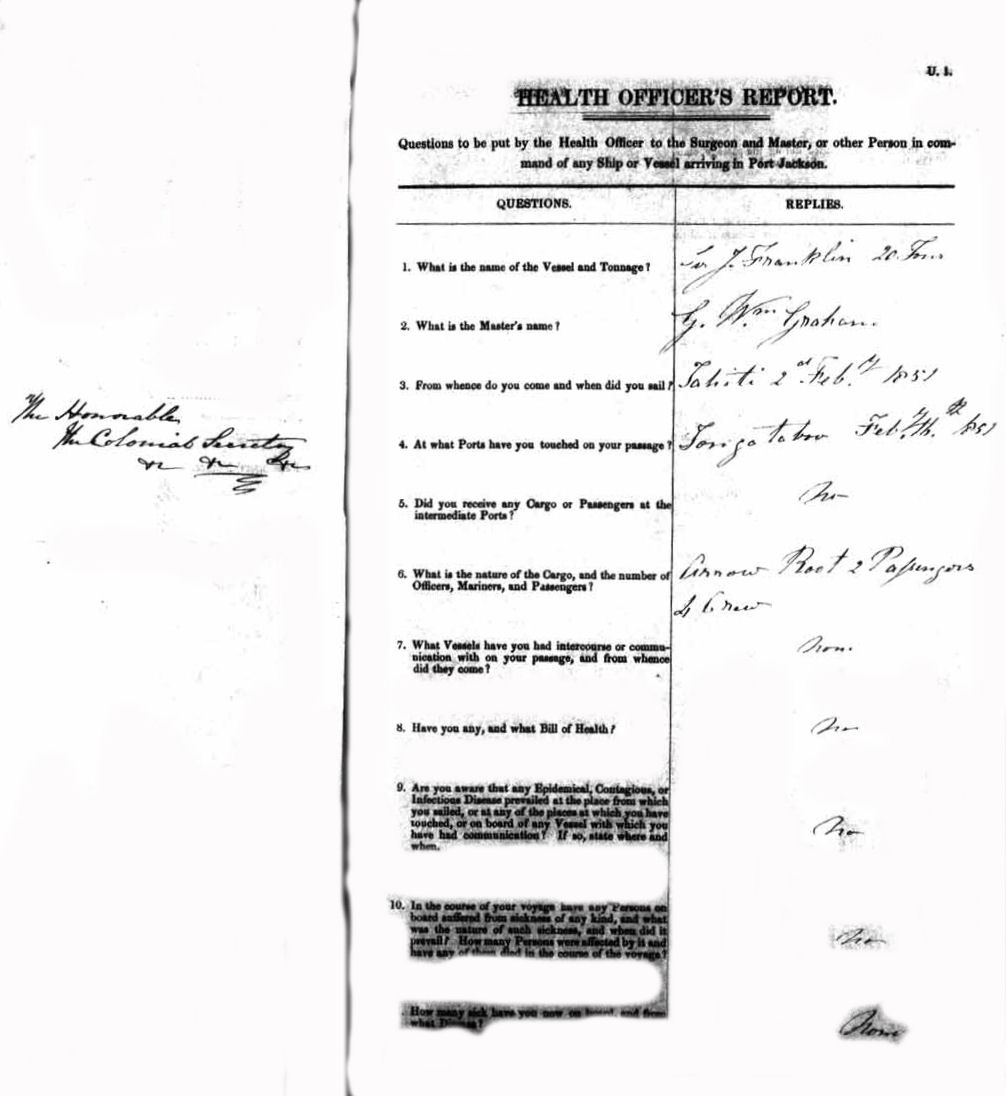 The Honorable
The Colonial Secretary
&c &c &c
U. 1.
HEALTH OFFICER'S REPORT.
Questions to be put by the Health Officer to the Surgeon and Master, or other Person in com-
mand of any Ship or Vessel arriving in Port Jackson.
QUESTIONS. REPLIES.
1. What is the name of the Vessel and Tonnage? Sir J. Franklin 20 Tons
2. What is the Master's name? G. Wm Graham.
3. From whence do you come and when did you sail? Tahiti 2d Feb.y 1851
4. At what Ports have you touched on your passage? Tongatabou Feb.y th 1851
5. Did you receive any Cargo or Passengers at the
intermediate Ports? No
6. What is the nature of the Cargo, and the number of
Officers, Mariners, and Passengers? Arrow Root 2 Passengers
4 Crew
7. What Vessels have you had intercourse or commu-
nication with on your passage, and from whence
did they come? None
8. Have you any, and what Bill of Health? No
9. Are you aware that any Epidemical, Contagious, or
Infectious Disease prevailed at the place from which
you sailed, or at any of the places at which you have
touched, or on board of any Vessel with which you
have had communication? If so, state where and
when. No
10. In the course of your voyage have any Persons on
board suffered from sickness of any kind, and what
was the nature of such sickness, and when did it
prevail? How many Persons were affected by it and
have any of them died in the course of the voyage? No
How many sick have you now on board, and from
what Disease? None